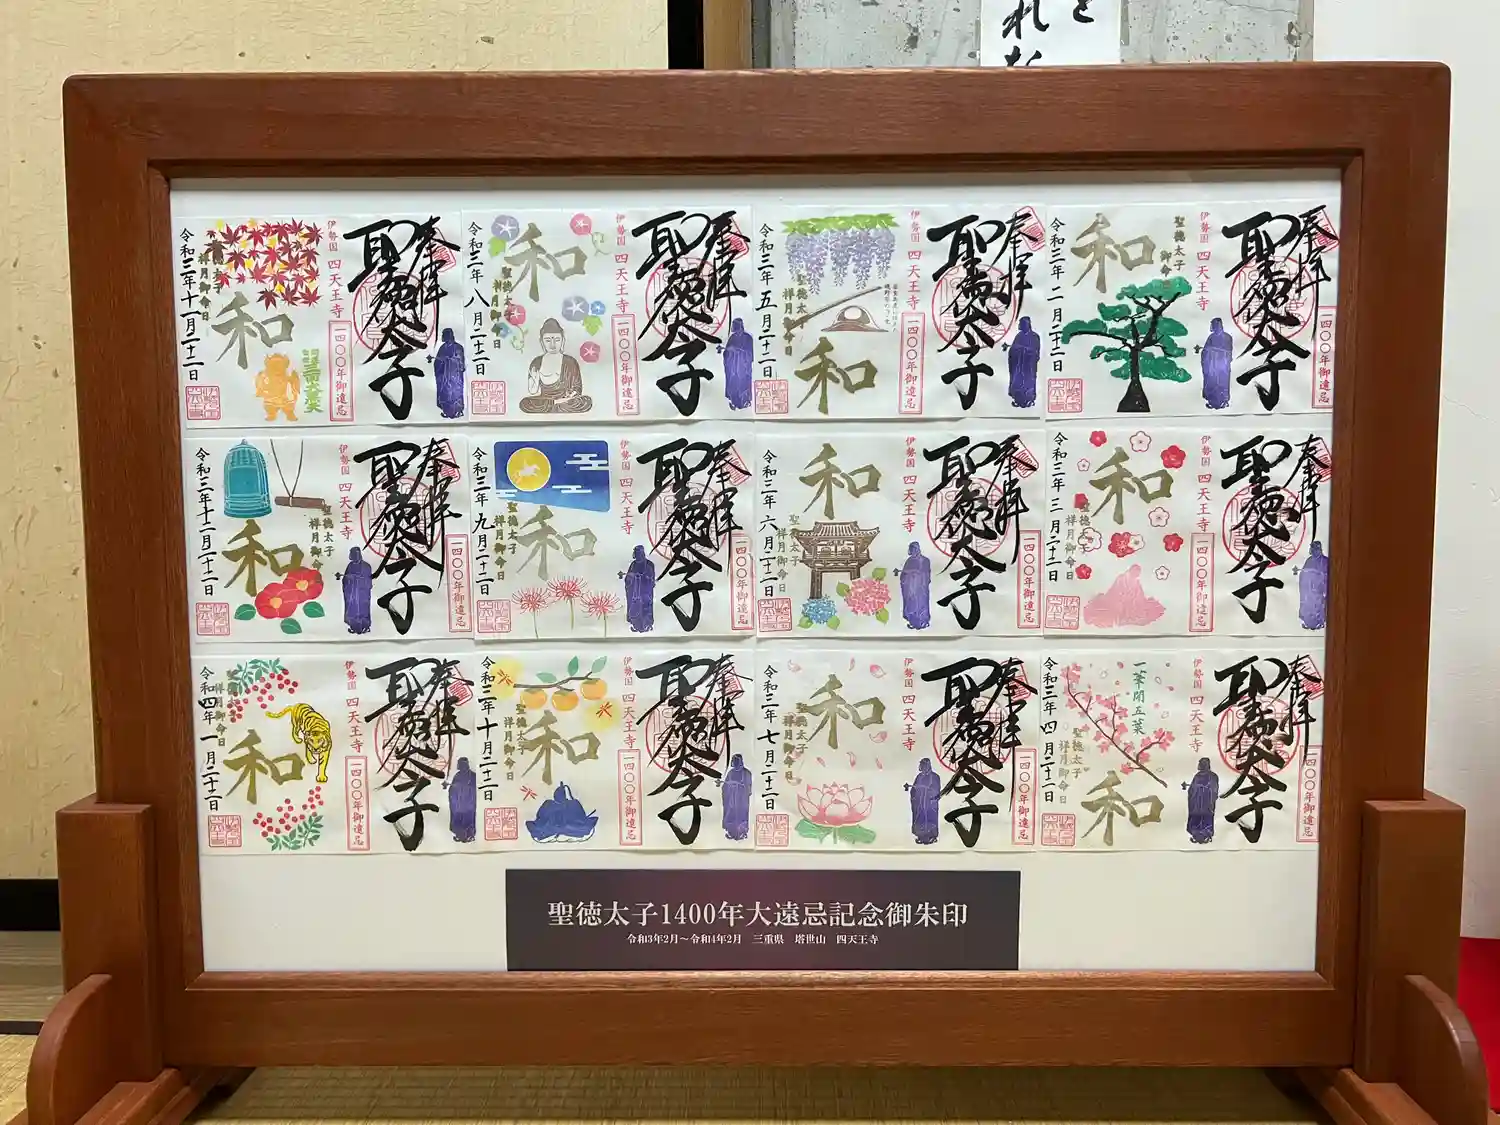 と
れな
奉拝
聖徳太子
伊勢国 四天王寺
一四〇〇年御遠忌
和
聖徳太子
祥月御命日
令和三年二月二十二日
奉拝
聖徳太子
伊勢国 四天王寺
一四〇〇年御遠忌
和
聖徳太子
祥月御命日
令和三年五月二十二日
奉拝
聖徳太子
伊勢国 四天王寺
一四〇〇年御遠忌
和
聖徳太子
祥月御命日
令和三年八月二十二日
奉拝
聖徳太子
伊勢国 四天王寺
一四〇〇年御遠忌
和
聖徳太子
祥月御命日
令和三年十一月二十二日
奉拝
聖徳太子
伊勢国 四天王寺
一四〇〇年御遠忌
和
聖徳太子
祥月御命日
令和三年三月二十二日
奉拝
聖徳太子
伊勢国 四天王寺
一四〇〇年御遠忌
和
聖徳太子
祥月御命日
令和三年六月二十二日
奉拝
聖徳太子
伊勢国 四天王寺
一四〇〇年御遠忌
和
聖徳太子
祥月御命日
令和三年九月二十二日
奉拝
聖徳太子
伊勢国 四天王寺
一四〇〇年御遠忌
和
聖徳太子
祥月御命日
令和三年十二月二十二日
奉拝
聖徳太子
伊勢国 四天王寺
一四〇〇年御遠忌
一華開五葉
和
聖徳太子
祥月御命日
令和三年四月二十二日
奉拝
聖徳太子
伊勢国 四天王寺
一四〇〇年御遠忌
和
聖徳太子
祥月御命日
令和三年七月二十二日
奉拝
聖徳太子
伊勢国 四天王寺
一四〇〇年御遠忌
和
聖徳太子
祥月御命日
令和三年十月二十二日
奉拝
聖徳太子
伊勢国 四天王寺
一四〇〇年御遠忌
和
聖徳太子
祥月御命日
令和四年一月二十二日
聖徳太子1400年大遠忌記念御朱印
令和3年2月～令和4年2月 三重県 塔世山 四天王寺